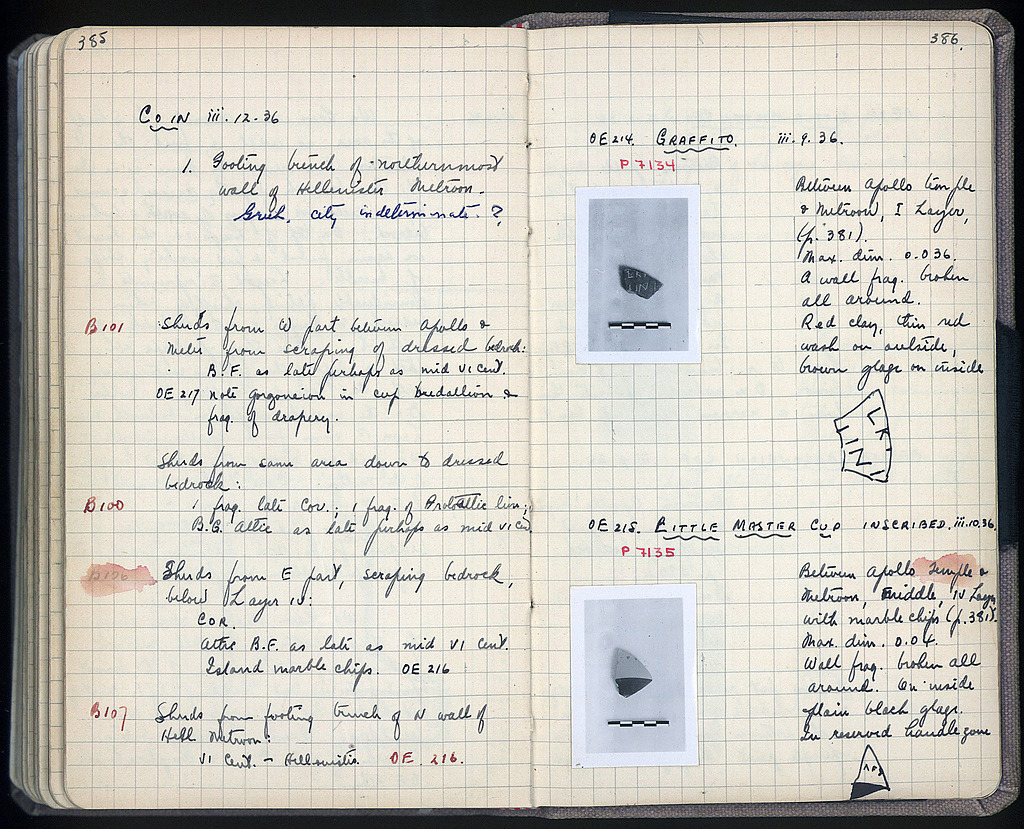 385
COIN iii.12.36
1. Footing trench of northernmost
wall of Hellenistic Metroon.
Greek, city indeterminate. ?
B101
Sherds from W part between Apollo &
Meter from scraping of dressed bedrock:
B.F. as late perhaps as mid VI cent.
OE 217 note gorgoneion in cup medallion &
frag. of drapery.
Sherds from same area down to dressed
bedrock:
B100
1 frag. late Cor.; 1 frag. of ProtoAttic
B.G. Attic as late perhaps as mid VI cen
B106
Sherds from E part, scraping bedrock,
below Layer IV:
COR.
Attic B.F. as late as mid VI cent.
Island marble chips. OE 216
B107
Sherds from footing trench of N wall of
Hell Metroon:
VI cent. – Hellenistic. OE. 216.
386.
OE 214. GRAFFITO. iii.9.36.
P 7134
Between Apollo temple
& Metroon, I Layer,
(p. 381).
Max. dim. 0.036.
A wall frag. broken
all around.
Red clay, thin red
wash on outside,
brown glaze on inside
LK
LIN
OE 215. LITTLE MASTER CUP INSCRIBED. iii.10.36
P 7135
Between Apollo Temple &
Metroon, middle, IV Layer
with marble chips (p. 381).
Max. dim. 0.04.
Wall frag. broken all
around. On inside
plain black glaze.
In reserved handle zone